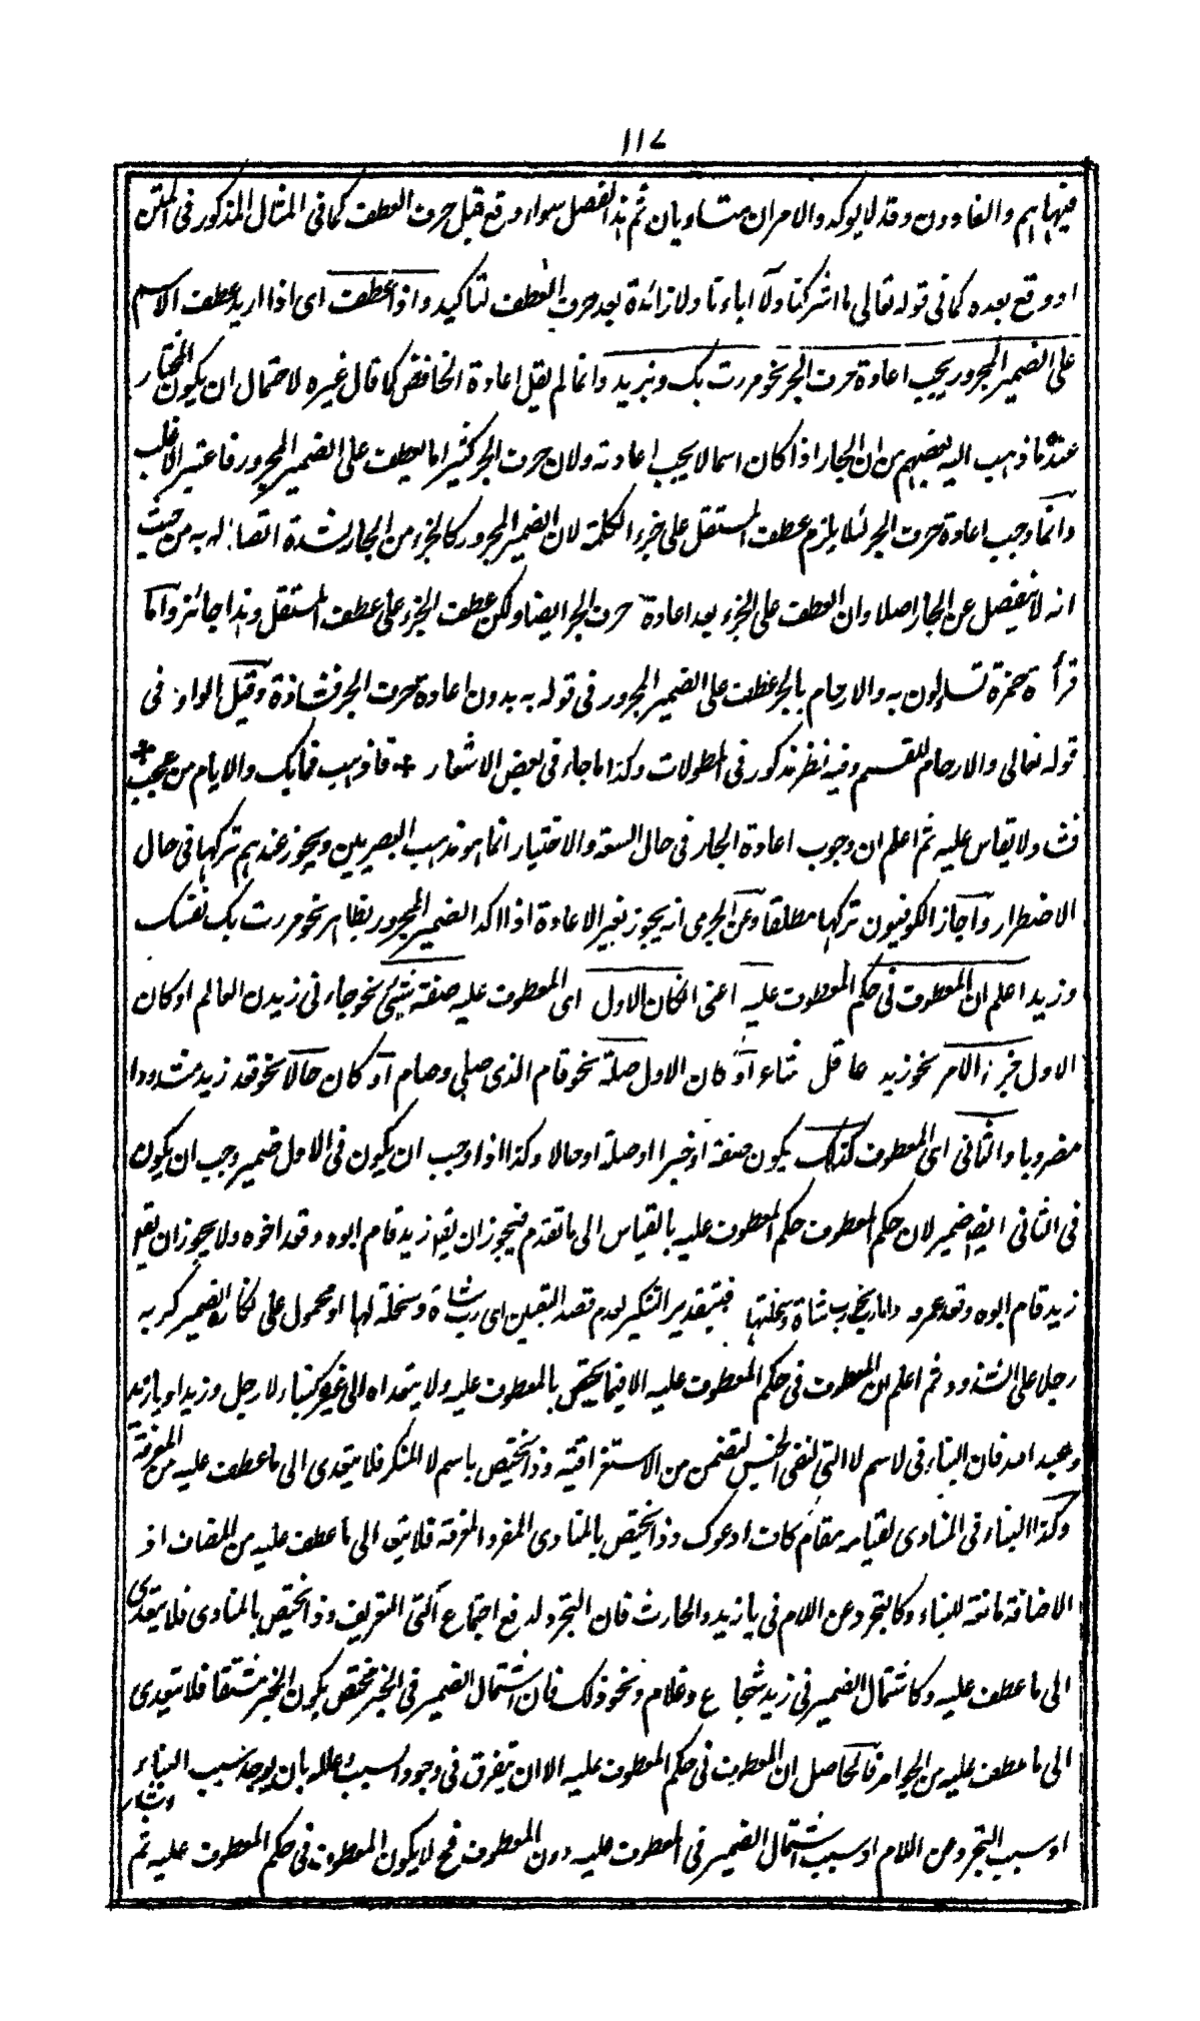 ١١٧
فيها هم والغاوون وقد لا يوكد والامران متساويان ثم هذا الفصل سواء وقع قبل حرف العطف كما فى المثال المذكور فى المتن
او وقع بعده كما فى قوله تعالى ما اشركنا ولا اباءنا ولا زائدة بعد حرف العطف لتاكيد واذا عطف اى اذا اريد عطف الاسم
على الضمير المجرور يجب اعادة حرف الجر نحو مررت بك وبزيد وانما لم يقل اعادة الخافض كما قال غيره لاحتمال ان يكون المختار
عنده ما ذهب اليه بعضهم من ان الجار اذا كان اسما لا يجب اعادته ولان حرف الجر كثيرا ما يعطف على الضمير المجرور فاعتبر الاغلب
وانما وجب اعادة حرف الجر لئلا يلزم عطف المستقل على جزء الكلمة لان الضمير المجرور كالجزء من الجار لشدة اتصاله به من حيث
انه لا ينفصل عن الجار اصلا وان العطف على الجزء بعد اعادة حرف الجر ايضا ولكن عطف الجزء على عطف المستقل وهذا جائز واما
قرأة حمزة تساءلون به والارحام بالجر عطف على الضمير المجرور فى قوله به بدون اعادة حرف الجر فشاذة وقيل الواو فى
قوله تعالى والارحام للقسم وفيه نظر مذكور فى المطولات وكذا ما جاء فى بعض الاشعار + فاذهب فما بك والايام من عجب +
فشاذ ولا يقاس عليه ثم اعلم ان وجوب اعادة الجار فى حال السعة والاختيار انما هو مذهب البصريين ويجوز عندهم تركها فى حال
الاضطرار واجاز الكوفيون تركها مطلقا وعن الجرمى انه يجوز بغير الاعادة اذا اكد الضمير المجرور بظاهر نحو مررت بك نفسك
وزيد اعلم ان المعطوف فى حكم المعطوف عليه اعنى ان كان الاول اى المعطوف عليه صفة لشئ نحو جاءنى زيدن العالم او كان
الاول خبرا لامر نحو زيد عاقل شاعر او كان الاول صلة نحو قام الذى صلى وصام او كان حالا نحو قعد زيد مشدودا
مضروبا والثانى اى المعطوف كذلك يكون صفة او خبرا او صلة او حالا وكذا اذا وجب ان يكون فى الاول ضمير وجب ان يكون
فى الثانى ايضا ضمير لان حكم المعطوف حكم المعطوف عليه بالقياس الى ما تقدم فيجوز ان يقو زيد قام ابوه وقعد اخوه ولا يجوز ان يقو
زيد قام ابوه وقعد عمرو واما نحو رب شاة وسخلتها فبتقدير التنكير لعدم قصد التعيين اى رب شاة وسخلة لها او محمول على نكارة الضمير كربه
رجلا على الشذوذ ثم اعلم ان المعطوف فى حكم المعطوف عليه الا فيما يختص بالمعطوف عليه ولا يتعداه الى غيره كبناء لا رجل وزيدا ويا زيد
وعبد الله فان البناء فى لاسم لا التى لنفى الجنس لتضمن من الاستغراقية وذا يختص باسم لا المنكر فلا يتعدى الى ما عطف عليه من المعرفة
وكذا البناء فى المنادى لقيامه مقام كاف ادعوك وذا يختص بالمنادى المفرد المعرفة فلا يتعد الى ما عطف عليه من المضاف اذ
الاضافة مانعة للبناء وكالتجرد عن اللام فى يا زيد والحارث فان التجرد لدفع اجتماع آلتى التعريف وذا يختص بالمنادى فلا يتعدى
الى ما عطف عليه وكاشتمال الضمير فى زيد شجاع وغلام ونحو ذلك فان اشتمال الضمير فى الخبر مختص بكون الخبر مشتقا فلا يتعدى
الى ما عطف عليه من الجوامد فالحاصل ان المعطوف فى حكم المعطوف عليه الا ان يفرق فى وجود السبب وعلله بان يوجد سبب البناء
او سبب التجرد عن اللام او سبب اشتمال الضمير فى المعطوف عليه دون المعطوف فح لا يكون المعطوف فى حكم المعطوف عليه ثم